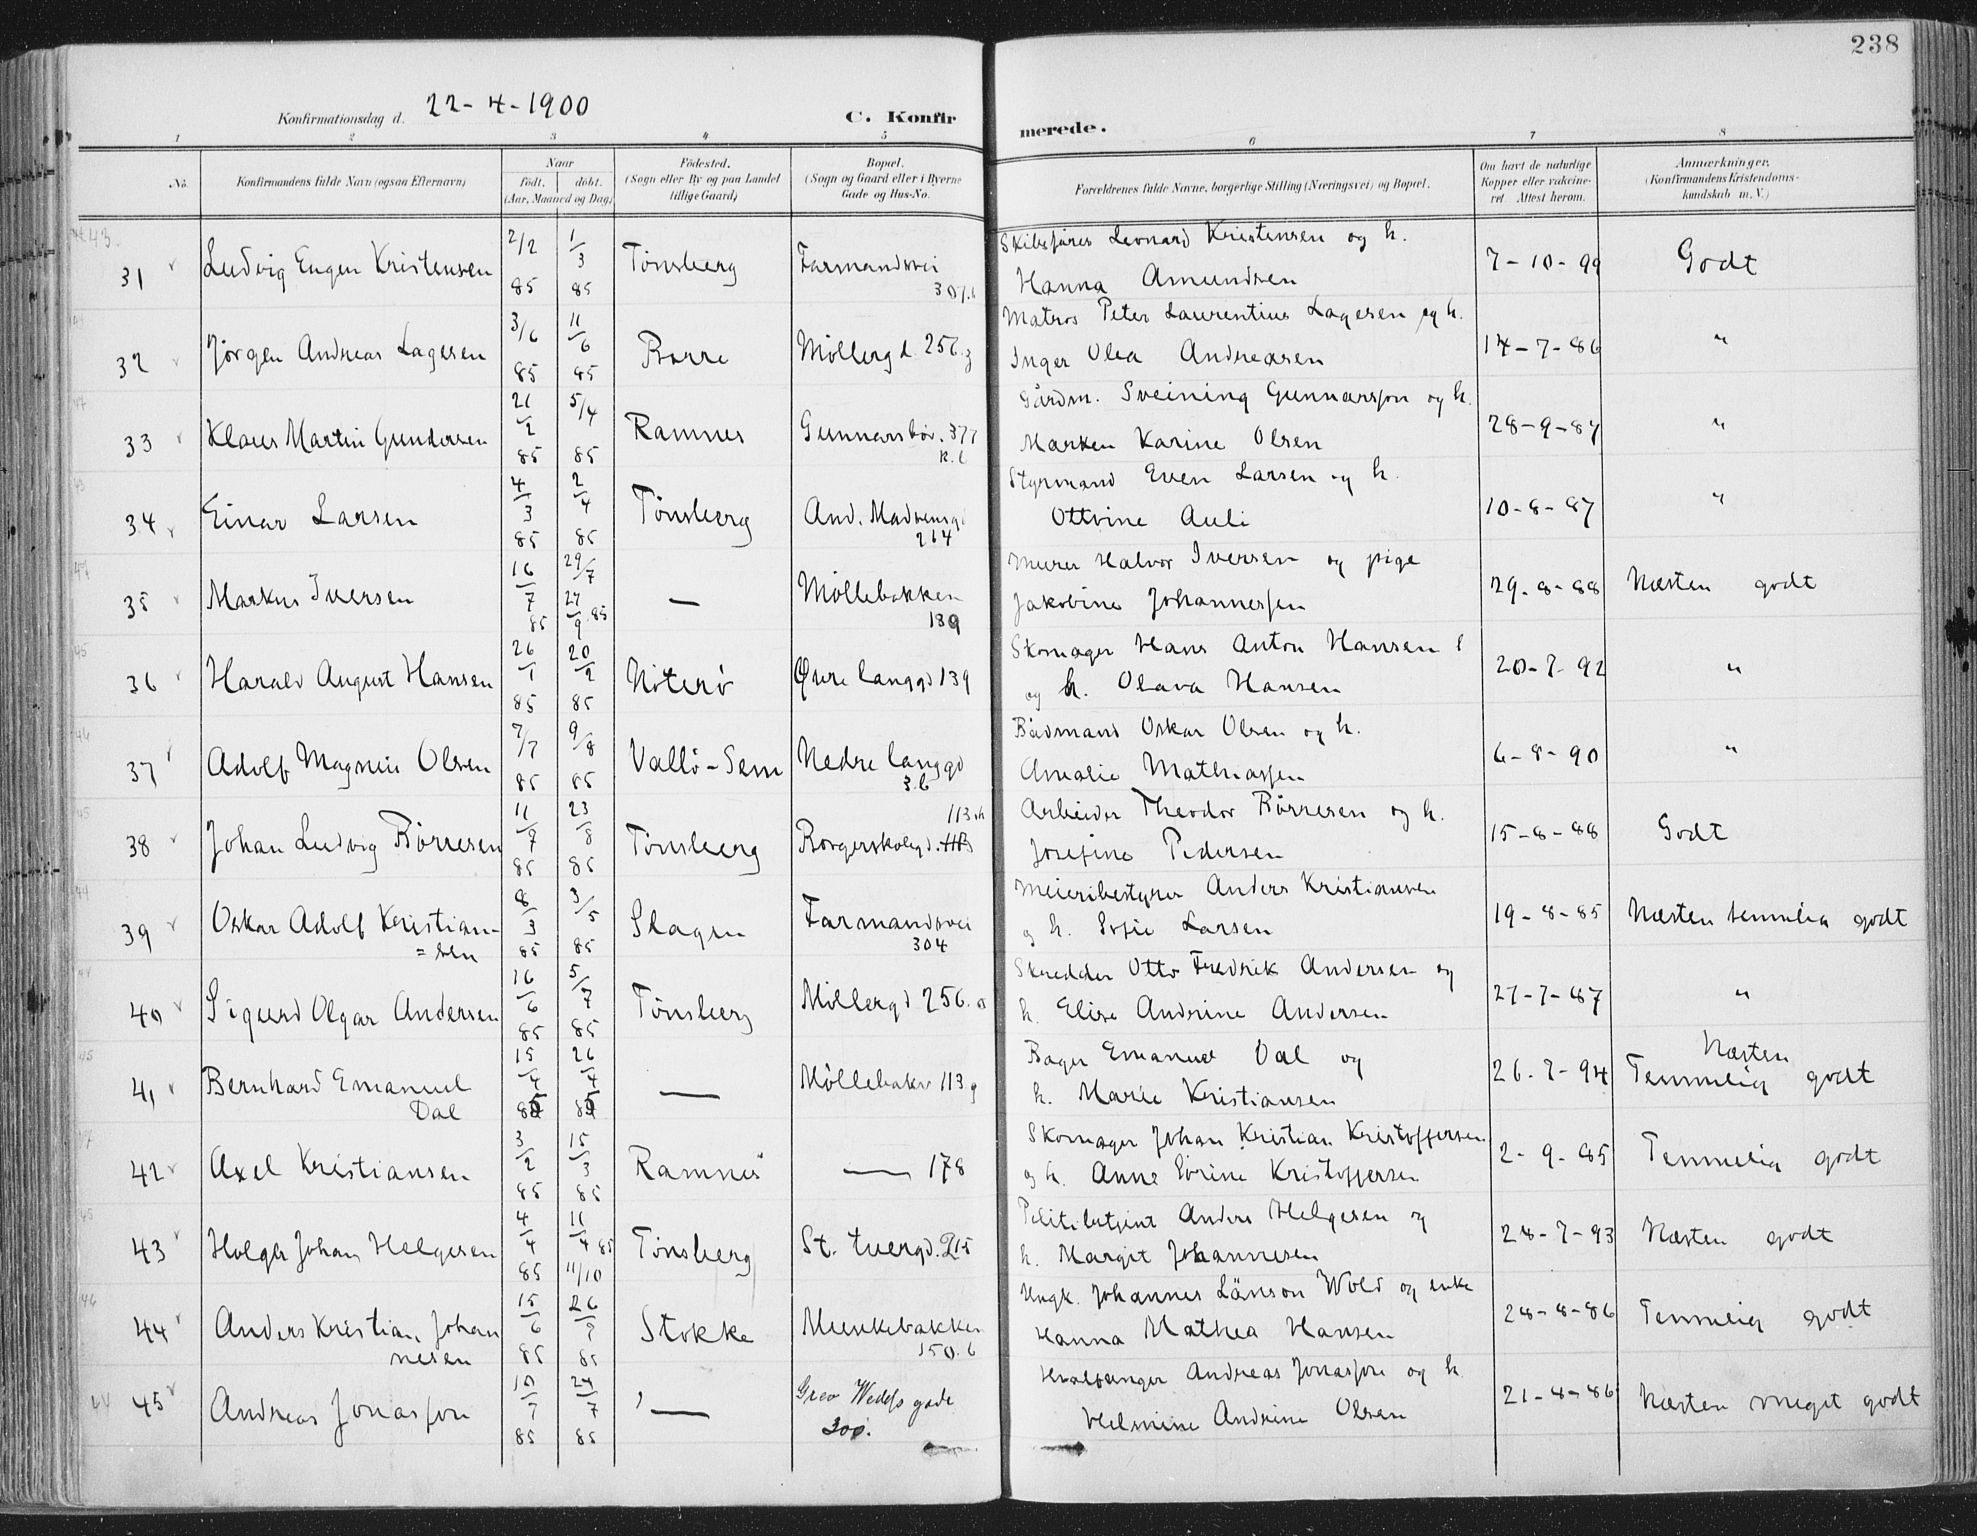 238
Konfirmationsdag d. 22-4-1900
C. Konfirmerede.
1 2 3 4 5 6 7 8
No.
Konfirmandens fulde Navn (ogsaa Efternavn)
Naar
født. døbt.
(Aar, Maaned og Dag)
Fødested.
(Sogn eller By og paa Landet
tillige Gaard)
Bopæl.
(Sogn og Gaard eller i Byerne
Gade og Hus-No.
Forældrenes fulde Navne, borgerlige Stilling (Næringsvei) og Bopæl.
Om havt de naturlige
Kopper eller vaccine-
ret Attest herom.
Anmærkninger.
(Konfirmandens Kristendoms-
kundskab m. V.)
31 Ludvig Eugen Kristensen 2/2 85 1/3 85 Tönsberg Farmandsvei 307.b Skibsfører Leonard Kristensen og h.
Hanna Amundsen 7-10-99 Godt
32 Jörgen Andreas Lagesen 3/6 85 11/6 85 Borre Möllergd. 256. Matros Peter Laurentius Lagesen og h.
Inger Olea Andreasen 14-7-86 "
33 Klaus Martin Gundersen 21/2 85 5/4 85 Ramnes Gunnarsböv. 377 Gårdm. Sveining Gunnarsson og h.
Maren Karine Olsen 28-9-87 "
34 Einar Larsen 4/3 85 2/4 85 Tönsberg And. Madsensg. 264 Styrmand Even Larsen og h.
Ottvine Auli 10-8-87 "
35 Markus Iversen 16/7 85 29/7 27/9 85 — Möllebakken 189 Murer Halvor Iversen og pige
Jakobine Johannessen 29-8-88 Næsten godt
36 Harald August Hansen 26/1 85 20/2 85 Nöterö Övre langgd 139 Skomager Hans Anton Hansen
og h. Olava Hansen 20-7-92 "
37 Adolf Magnus Olsen 7/7 85 9/8 85 Vallö-Sem Nedre langgd 3.b Bådmand Oskar Olsen og h.
Amalie Mathiassen 6-8-90 "
38 Johan Ludvig Börresen 11/7 85 23/8 85 Tönsberg Borgerskolegd. 113 Arbeider Theodor Börresen og h.
Josefine Pedersen 15-8-88 Godt
39 Oskar Adolf Kristian-
=sen 8/3 85 3/5 85 Slagen Farmandsvei 304 Meieribestyrer Anders Kristiansen
og h. Sofie Larsen 19-8-85 Næsten temmelig godt
40 Sigurd Olgar Andersen 16/6 85 5/7 85 Tönsberg Möllergd 256. Skredder Otto Fredrik Andersen og
h. Elise Andrine Andersen 27-7-87 "
41 Bernhard Emanuel
Dal 15/4 85 26/4 85 — Möllebakv 113 Bager Emanuel Dal og
h. Marie Kristiansen 26-7-94 Næsten
Temmelig godt
42 Axel Kristiansen 3/2 85 15/3 85 Ramnes — 178 Skomager Johan Kristian Kristoffersen
og h. Anne Sörine Kristoffersen 2-9-85 Temmelig godt
43 Holger Johan Helgesen 4/4 85 11/4 85 11/10 Tönsberg St. tvergd. 215 Politibetjent Anders Helgesen og
h. Margit Johannesen 28-7-93 Næsten godt
44 Anders Kristian Johan
nesen 15/6 85 26/9 85 Stokke Munkebakken 150.b Ungk. Johannes Larsson Wold og enke
Hanna Mathea Hansen 28-8-86 Temmelig godt
45 Andreas Jonassen 10/7 85 24/7 85 — Grev Wedels gade 300. Hvalfanger Andreas Jonassen og h.
Helmine Andrine Olsen 21-8-86 Næsten meget godt